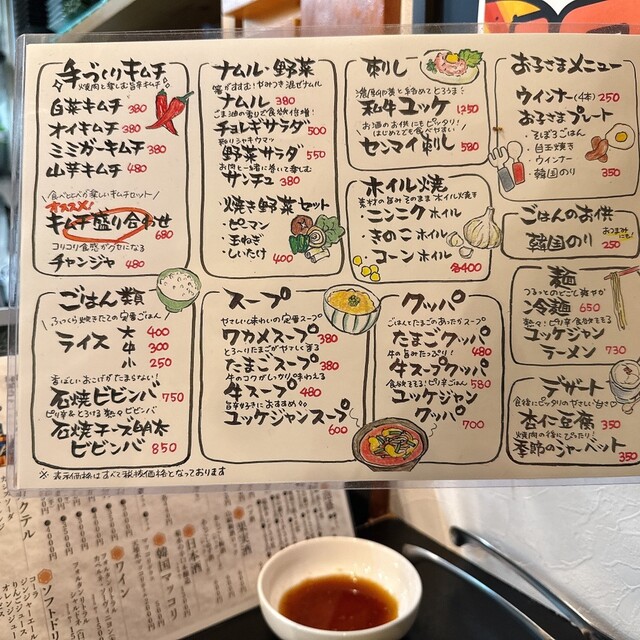 手づくりキムチ
焼肉と楽しむ旨辛キムチ
白菜キムチ 380
オイキムチ 380
ミミガーキムチ 380
山芋キムチ 480
オススメ!
キムチ盛り合わせ 680
コリコリ食感がクセになる
チャンジャ 480
ナムル・野菜
ナムル 380
ごま油の香りで食欲倍増!
チョレギサラダ 500
野菜サラダ 550
お肉と一緒に巻いて楽しむ
サンチュ 380
焼き野菜セット
・ピーマン
・玉ねぎ
・しいたけ 400
刺し
和牛ユッケ 1250
お酒のお供にもピッタリ!
はじめてでも食べやすい
センマイ刺し 580
ホイル焼
素材の旨みそのままホイル焼き
・ニンニクホイル
・きのこホイル
・コーンホイル
各400
お子さまメニュー
ウインナー(4本) 250
お子さまプレート
・そぼろごはん
・目玉焼き
・ウインナー
・韓国のり 350
ごはんのお供
おつまみにも!
韓国のり 250
麺
冷麺 650
ユッケジャン
ラーメン 730
ごはん類
ふっくら炊きたての定番ライス
ライス 大 400
中 300
小 250
香ばしいおこげがたまらない
石焼ビビンバ 750
石焼チーズ明太
ビビンバ 850
スープ
やさしい味わいの定番スープ
ワカメスープ 380
とろ〜りたまごがやさしく
たまごスープ 380
牛のコクがしっかり味わえる
牛スープ 480
旨辛好きにおすすめ
ユッケジャンスープ 600
クッパ
ごはんとたまごのあったかスープ
たまごクッパ 480
牛の旨みたっぷり!
牛スープクッパ 580
食欲そそるピリ辛ごはん
ユッケジャン
クッパ 700
デザート
食後にピッタリのやさしい甘さ
杏仁豆腐 350
焼肉の後にぴったり!
季節のシャーベット 350
※表示価格はすべて税抜価格となっております
カクテル
ワイン
韓国マッコリ
日本酒
果実酒
ソフトドリ
コーラ